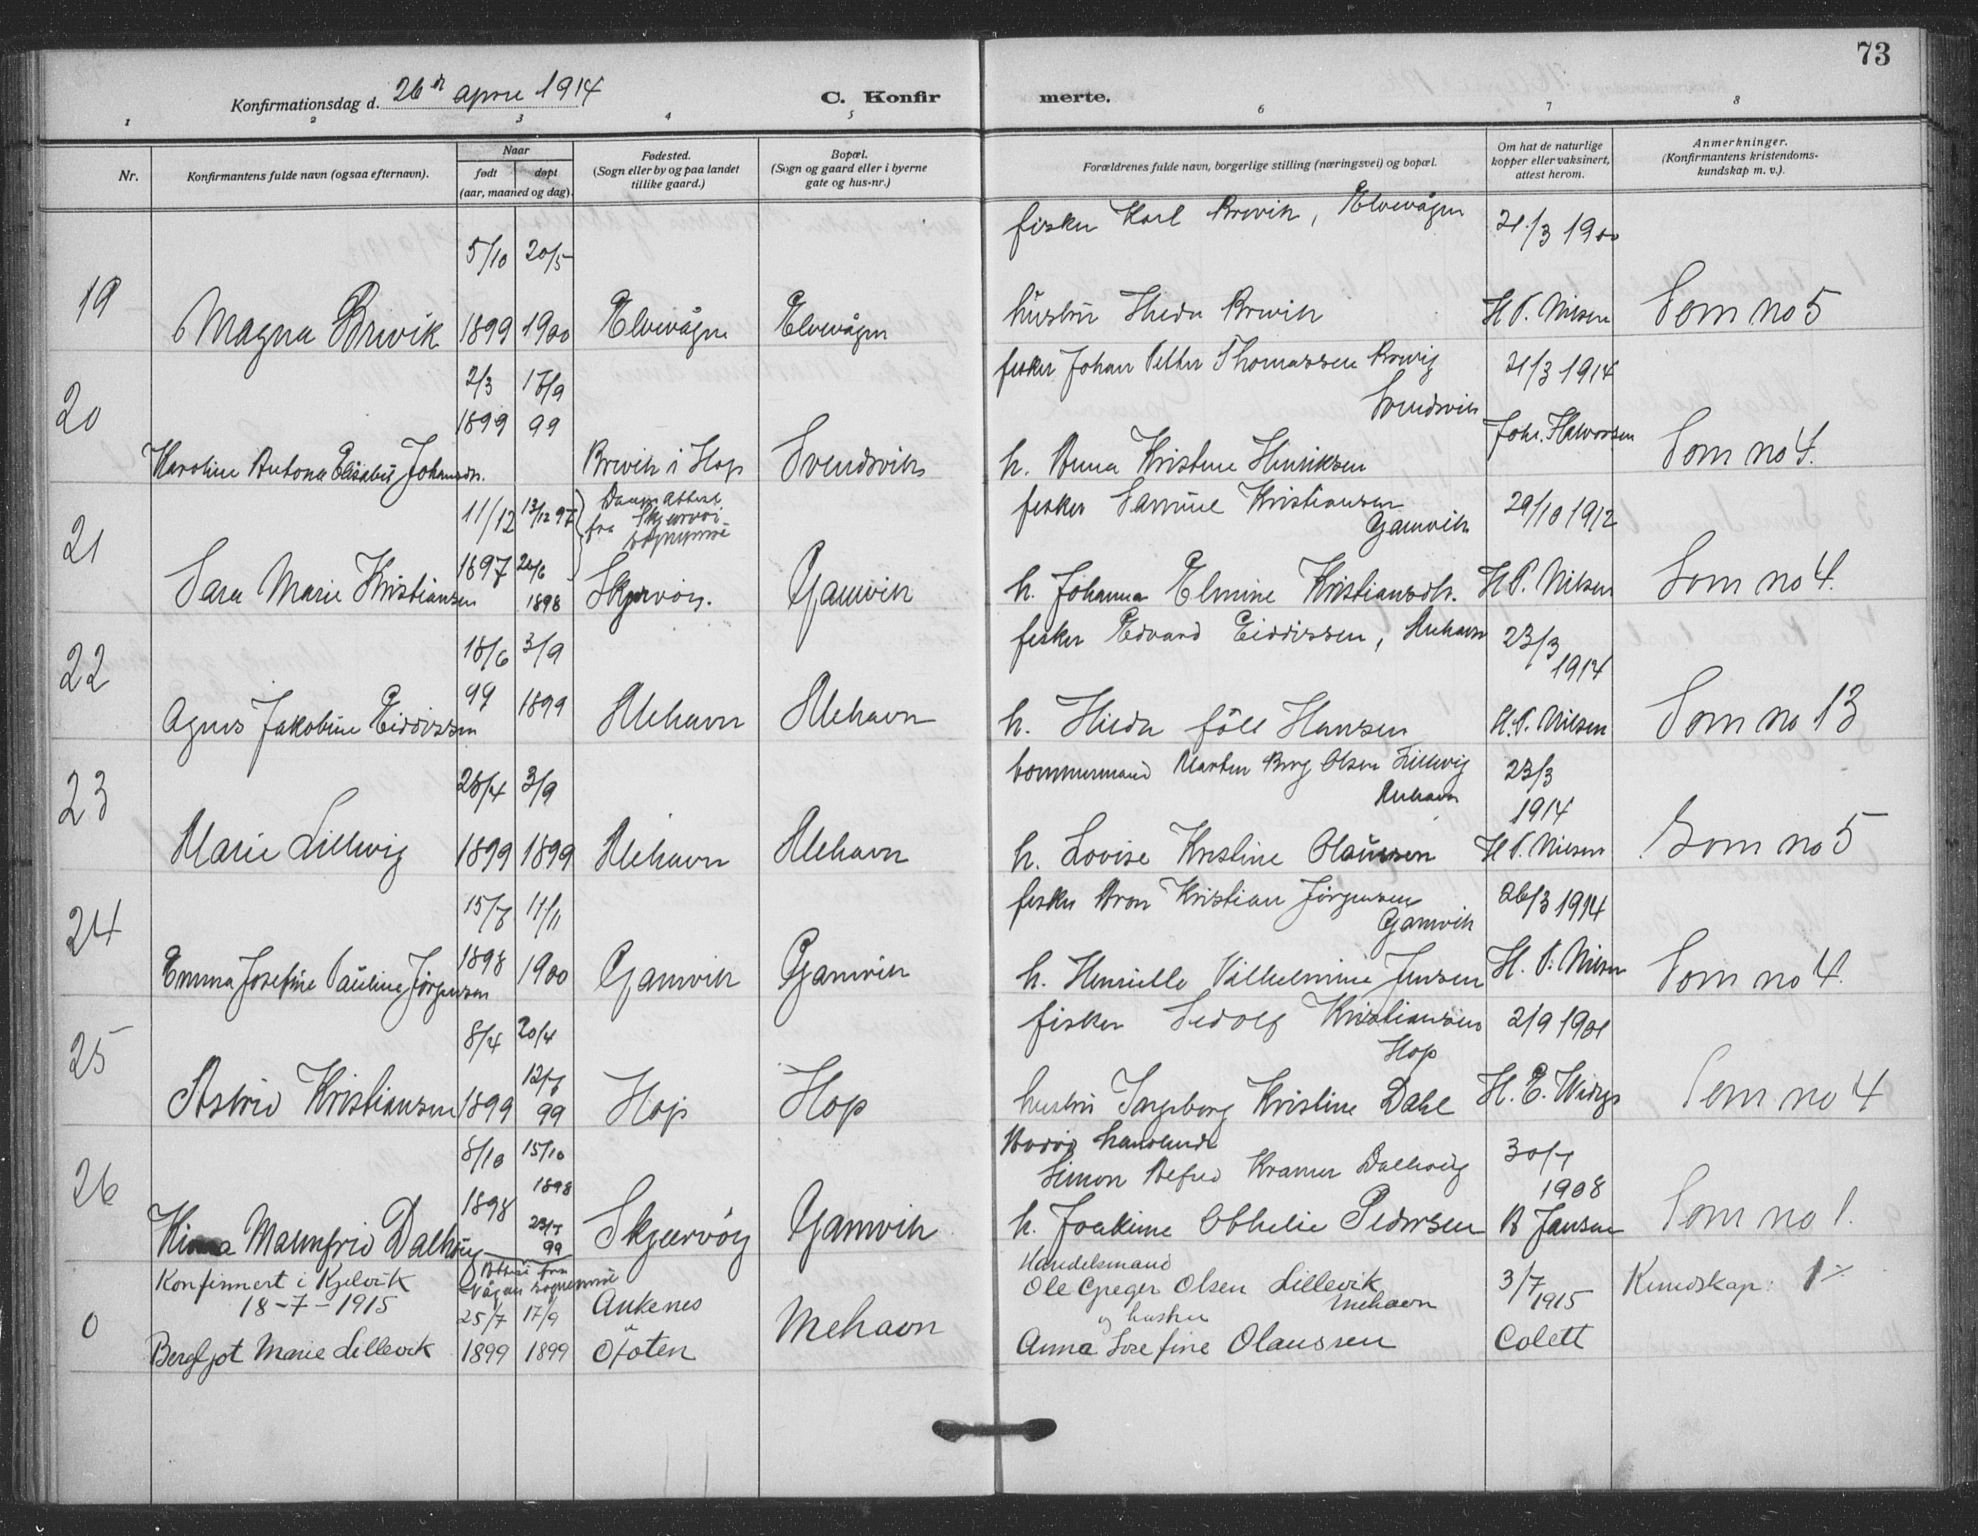 73
Konfirmationsdag d. 26de april 1914
C. Konfir
merte.
1 2 3 4 5 6 7 8
Nr.
Konfirmantens fulde navn (ogsaa efternavn).
Naar
født
døpt
(aar, maaned og dag).
Fødested.
(Sogn eller by og paa landet
tillike gaard.)
Bopæl.
(Sogn og gaard eller i byerne
gate og hus-nr.)
Forældrenes fulde navn, borgerlige stilling (næringsvei) og bopæl.
Om hat de naturlige
kopper eller vaksinert,
attest herom.
Anmerkninger.
(Konfirmantens kristendoms-
kundskap m. v.).
fisker Karl Brevik, Elvevågen
21/3 1900
5/10 20/5
19 Magna Brevik 1899 1900 Elvevågen Elvevågen
hustru Hilda Brevik H P. Nilsen Som no 5
fisker Johan Petter Thomassen Brevig
Svendsvik
21/3 1914
2/3 17/9
20 1899 99
Karoline Antona Elisabet Johansdr. Brevik i Hop Svendsvik
h. Anna Kristine Henriksen Joh. Halvorsen Som no 4.
fisker Samuel Kristiansen
Gamvik
29/10 1912
11/12 13/12 97 Daapsattest
fra Skjervøi
21 Sara Marie Kristiansen 1897 26/6
1898 Skjervøy. Gamvik
h. Johanna Elmine Kristiansdtr. H P. Nilsen Som no 4.
fisker Edvard Eidissen, Mehavn
23/3
1914
18/6 3/9
22 Agnes Jakobine Eidissen 99 1899 Mehavn Mehavn
h. Hilda föll Hansen H. P. Nilsen Som no 13
tømmermand Marten Berg Olsen Lillevig
Mehavn
23/3
1914
28/4 3/9
23 Marie Lillevig 1899 1899 Mehavn Mehavn
h. Lovise Kristine Olaussen H P. Nilsen Som no 5
fisker Aron Kristian Jörgensen
Gamvik
26/3 1914
15/7 11/11
24 Emma Josefine Pauline Jörgensen 1898 1900 Gamvik Gamvik
h. Henriette Vilhelmine Jensen H. P. Nilsen Som no 4.
fisker Sedolf Kristiansen
Hop
2/9 1901
8/4 20/4
12/7
25 Astrid Kristiansen 1899 99 Hop Hop
hustru Ingeborg Kristine Dahl H. E. Som no 4
handlende
Simon Alfred Kramer Dalhaug
30/7
1908
8/10 15/10
1898
26 Malmfrid Dalhaug 1898 23/7
99 Skjervöy Gamvik
h. Joakime Othelie Pedersen B Jansen Som no 1.
Konfirmert i Kjelvik
18-7-1915
Attest fra
Vågan sogneprest
0 Bergljot Marie Lillevik 25/7 17/9
1899 1899
Ankenes
i
Ofoten
Mehavn
Handelsmand
Ole Greger Olsen Lillevik
Mehavn
og hustru
Anna Josefine Olaussen
3/7
1915
Colett
Kundskap: 1÷